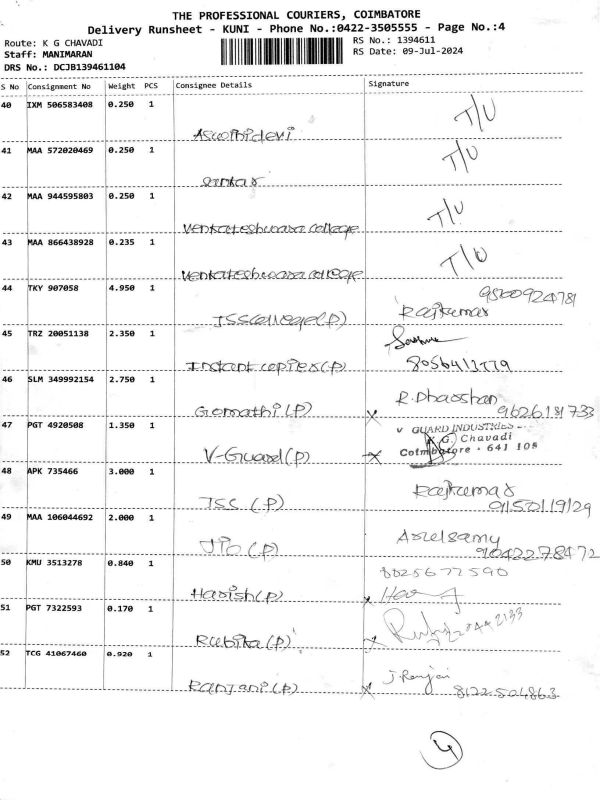 THE PROFESSIONAL COURIERS, COIMBATORE
Delivery Runsheet - KUNI - Phone No.:0422-3505555 - Page No.:4
Route: K G CHAVADI
RS No.: 1394611
Staff: MANIMARAN
RS Date: 09-Jul-2024
DRS No.: DCJB139461104
S No Consignment No Weight PCS Consignee Details Signature
40 IXM 506583408 0.250 1 T/U
Aswothidevi
41 MAA 572020469 0.250 1 T/U
42 MAA 944595803 0.250 1 T/U
Venkateshwara college
43 MAA 866438928 0.235 1 T/U
Venkateshwara college
44 TKY 907058 4.950 1 9500924781
JSS college(P) Rajkumar
45 TRZ 20051138 2.350 1
Instant copies(P)
46 SLM 349992154 2.750 1 R. Dhaoshan
Gomathi(P) x 9626181733
47 PGT 4920508 1.350 1 V GUARD INDUSTRIES
K.G. Chavadi
V-Guard(P) x Coimbatore - 641 105
48 APK 735466 3.000 1 Rajkumar
JSS (P) 9150119129
49 MAA 106044692 2.000 1 Aruelsamy
Jio(P) 91042278472
50 KMU 3513278 0.840 1 8825677590
Harish(P) x
51 PGT 7322593 0.170 1
Rubika(P) x
52 TCG 41067460 0.920 1 J. Ranjani
Ranjani(P) x 8122504863
4